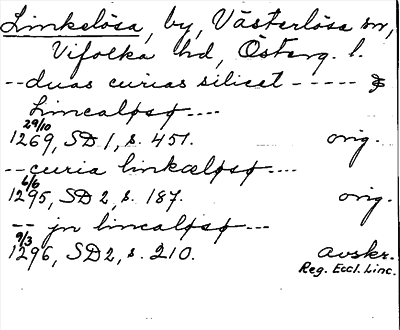 Linkelösa, by, Västerlösa sn,
Vifolka hd, Österg. l.
--duas curias silicet -----
Lincaløsø ----
29/10
1269, SD 1, s. 451. orig.
--curia linkæløsø ---
6/6
1295, SD 2, s. 187. orig.
-- jn lincaløsø ---
9/3
1296, SD 2, s. 210. avskr.
Reg. Eccl. Linc.